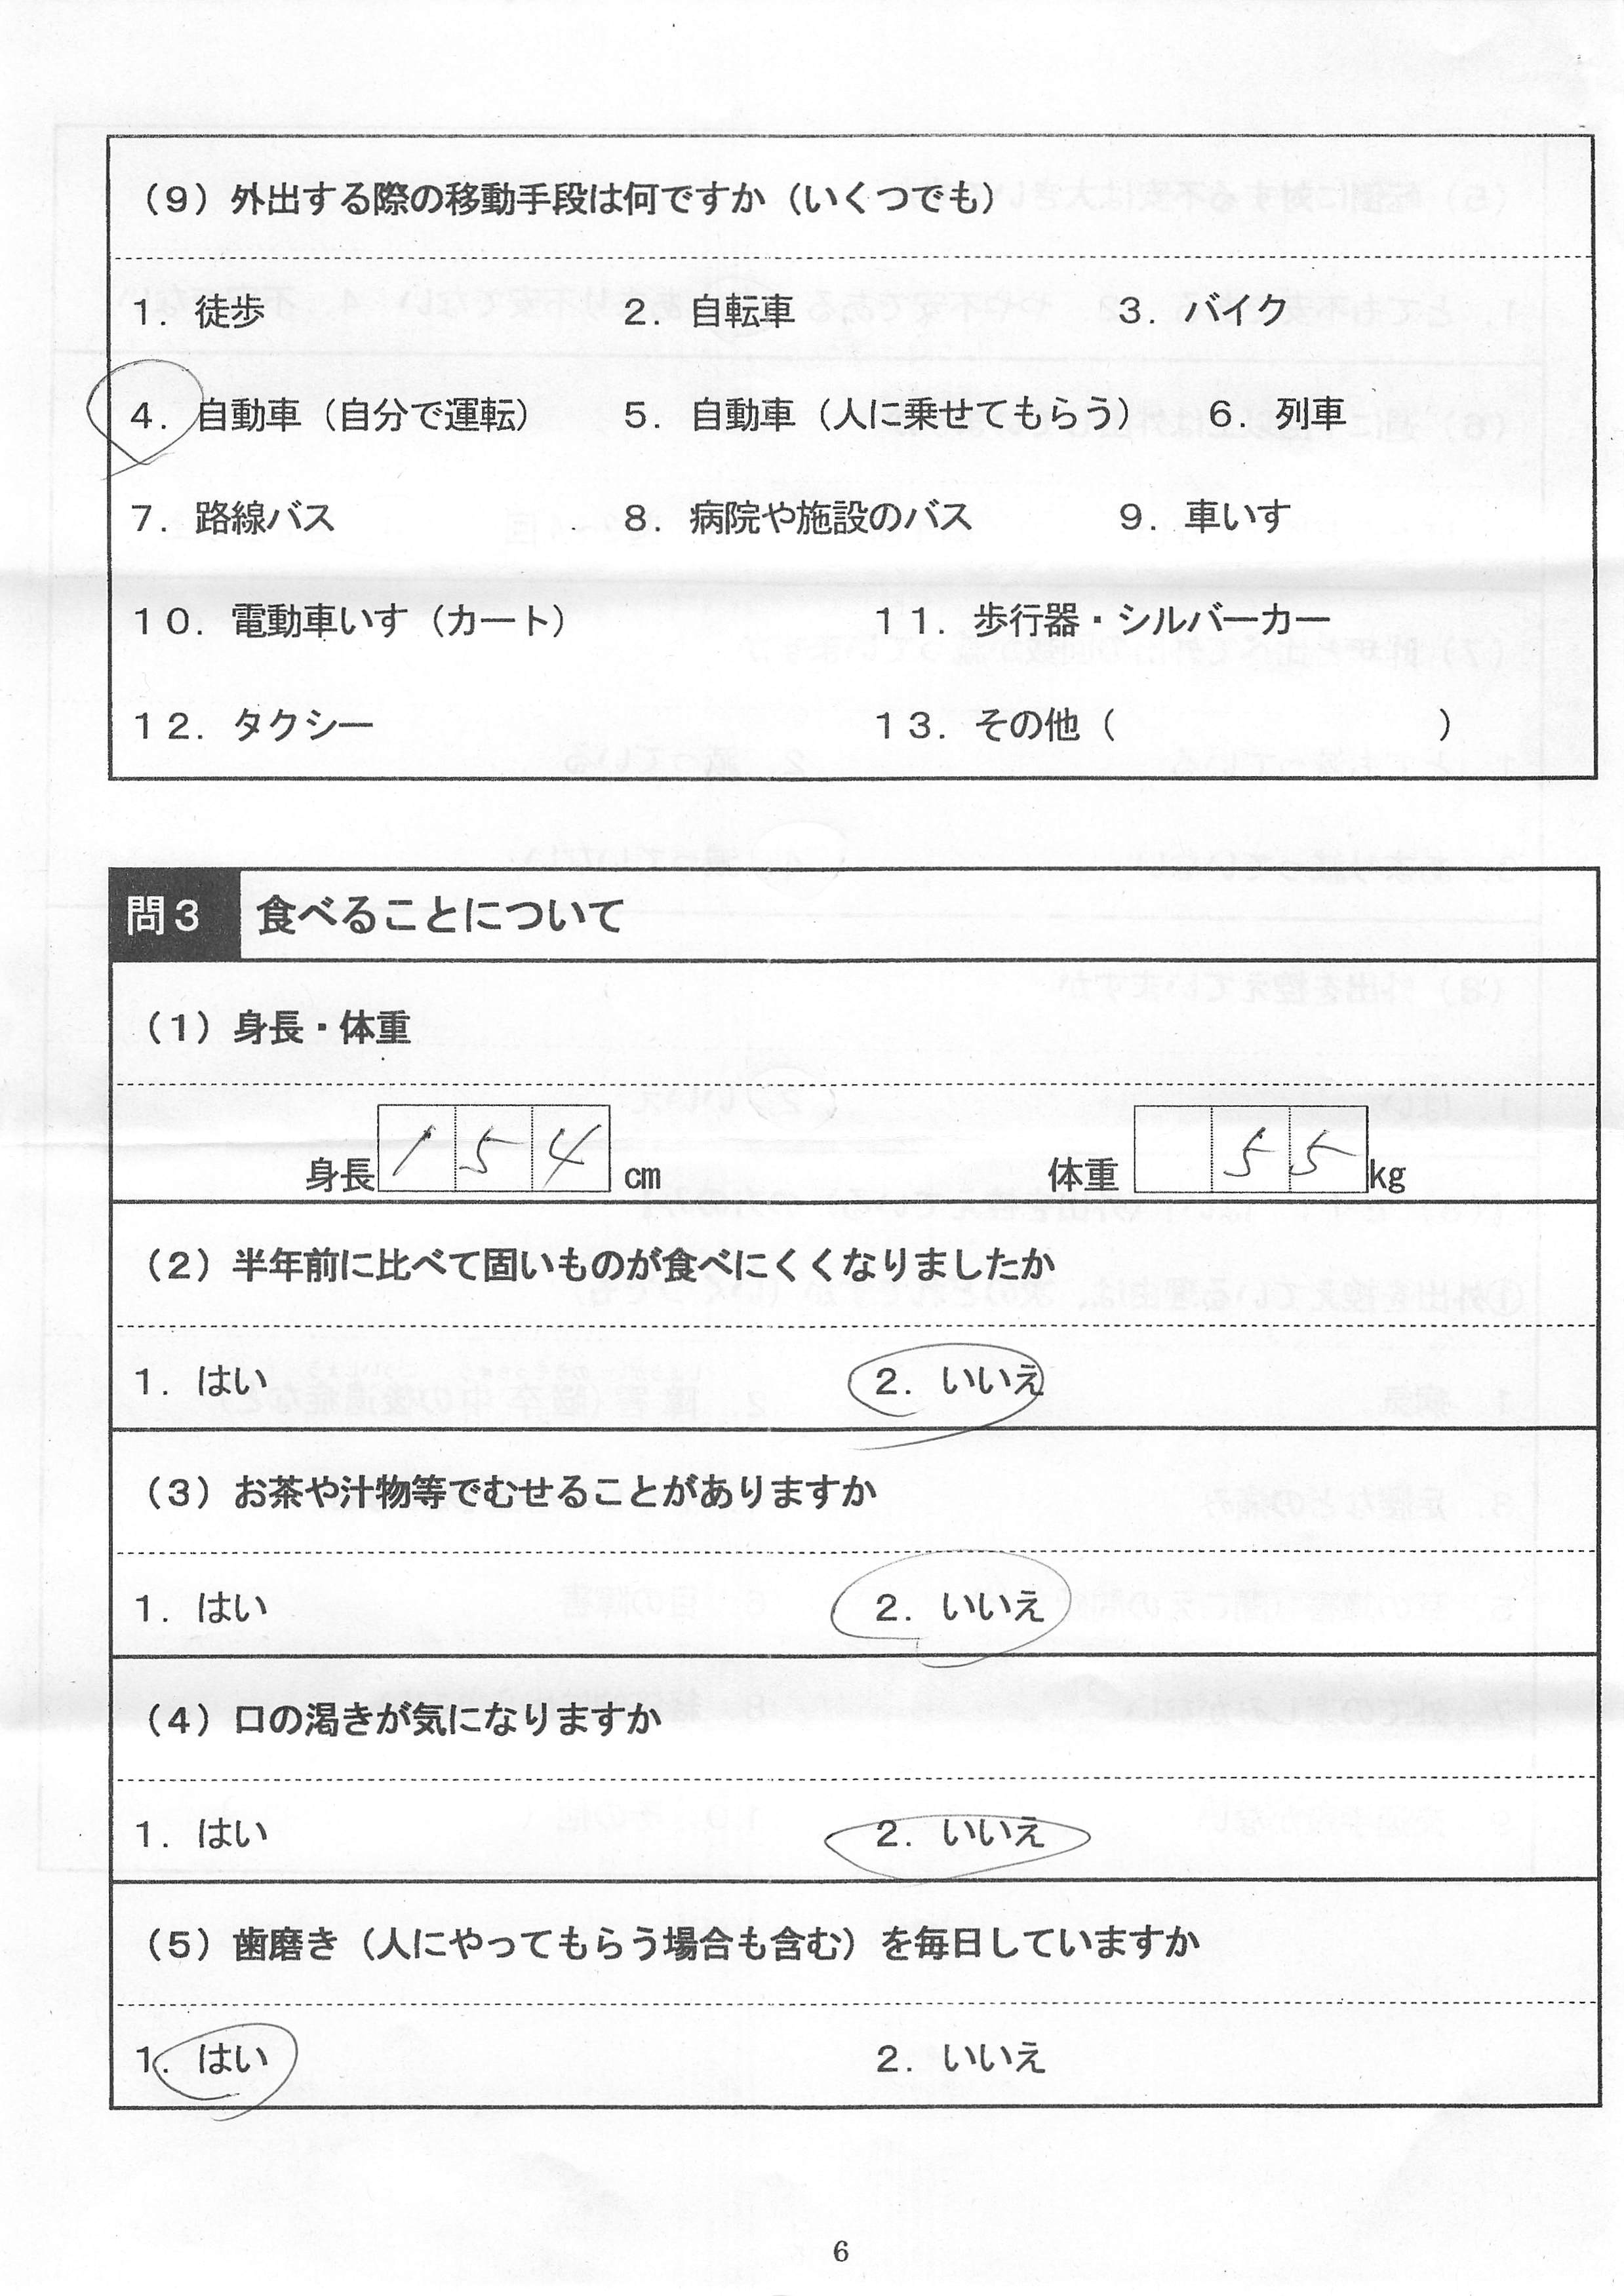 （９）外出する際の移動手段は何ですか（いくつでも）
１．徒歩　２．自転車　３．バイク
４．自動車（自分で運転）　５．自動車（人に乗せてもらう）　６．列車
７．路線バス　８．病院や施設のバス　９．車いす
１０．電動車いす（カート）　１１．歩行器・シルバーカー
１２．タクシー　１３．その他（　　　）
問３　食べることについて
（１）身長・体重
身長 1 5 4 cm　体重 5 5 kg
（２）半年前に比べて固いものが食べにくくなりましたか
１．はい　２．いいえ
（３）お茶や汁物等でむせることがありますか
１．はい　２．いいえ
（４）口の渇きが気になりますか
１．はい　２．いいえ
（５）歯磨き（人にやってもらう場合も含む）を毎日していますか
１．はい　２．いいえ
6